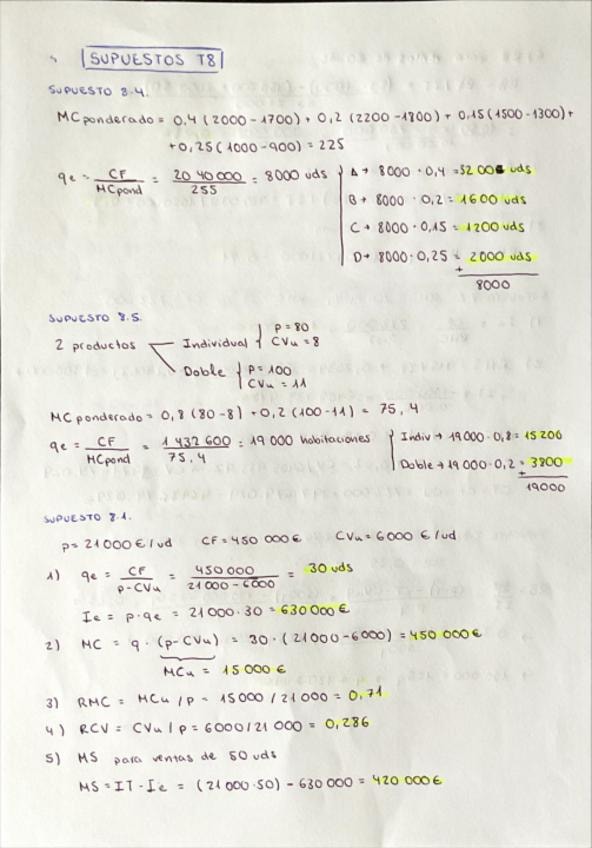 SUPUESTOS T8
SUPUESTO 8.4.
MC ponderado = 0,4 (2000 - 1700) + 0,2 (2200 - 1800) + 0,15 (1500 - 1300) +
+ 0,25 (1000 - 900) = 225
qe = CF / MCpond = 2040000 / 255 = 8000 uds
A → 8000 · 0,4 = 3200 uds
B → 8000 · 0,2 = 1600 uds
C → 8000 · 0,15 = 1200 uds
D → 8000 · 0,25 = 2000 uds
+
8000
SUPUESTO 8.5.
2 productos
Individual
p = 80
CVu = 8
Doble
p = 100
CVu = 11
MC ponderado = 0,8 (80 - 8) + 0,2 (100 - 11) = 75,4
qe = CF / MCpond = 1 432 600 / 75.4 = 19 000 habitaciones
Indiv → 19 000 · 0,8 = 15 200
Doble → 19 000 · 0,2 = 3800
+
19000
SUPUESTO 8.1.
p = 21 000 € / ud CF = 450 000 € CVu = 6000 € / ud
1) qe = CF / p - CVu = 450 000 / 21 000 - 6000 = 30 uds
Ie = p · qe = 21 000 · 30 = 630 000 €
2) MC = q · (p - CVu) = 30 · (21 000 - 6000) = 450 000 €
MCu = 15 000 €
3) RMC = MCu / P = 15 000 / 21 000 = 0,71
4) RCV = CVu / p = 6000 / 21 000 = 0,286
5) MS para ventas de 50 uds
MS = IT - Ie = (21 000 · 50) - 630 000 = 420 000 €